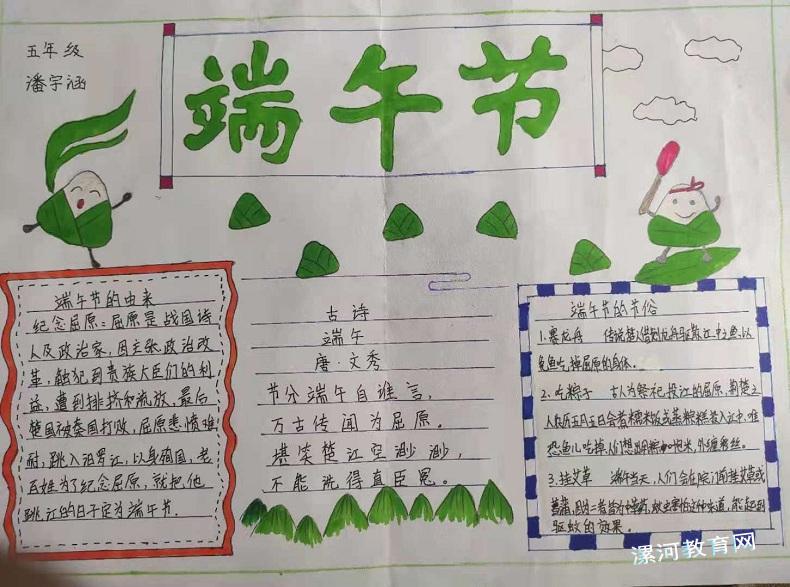 五年级
潘宇涵
端午节
端午节的由来
纪念屈原:屈原是战国诗
人及政治家,因主张政治改
革,触犯到贵族大臣们的利
益,遭到排挤和流放,最后
楚国被秦国打败,屈原悲愤难
耐,跳入汨罗江,以身殉国,老
百姓为了纪念屈原,就把他
跳江的日子定为端午节.
古诗
端午
唐·文秀
节分端午自谁言,
万古传闻为屈原。
堪笑楚江空渺渺,
不能洗得直臣冤。
端午节的节俗
1.赛龙舟 传说替人借划龙舟驱散江中之鱼,以
免鱼吃掉屈原的身体。
2.吃粽子 古人为祭祀投江的屈原,荆楚之
人在五月五日会煮糯米饭或蒸粽糕投入江中,唯
恐鱼儿吃掉,
3.挂艾草 端午当天,人们会在院门前挂艾草或
菖蒲,因为二者皆为中草药,蚊虫害怕这种味道,能起到
驱蚊的效果。
漯河教育网